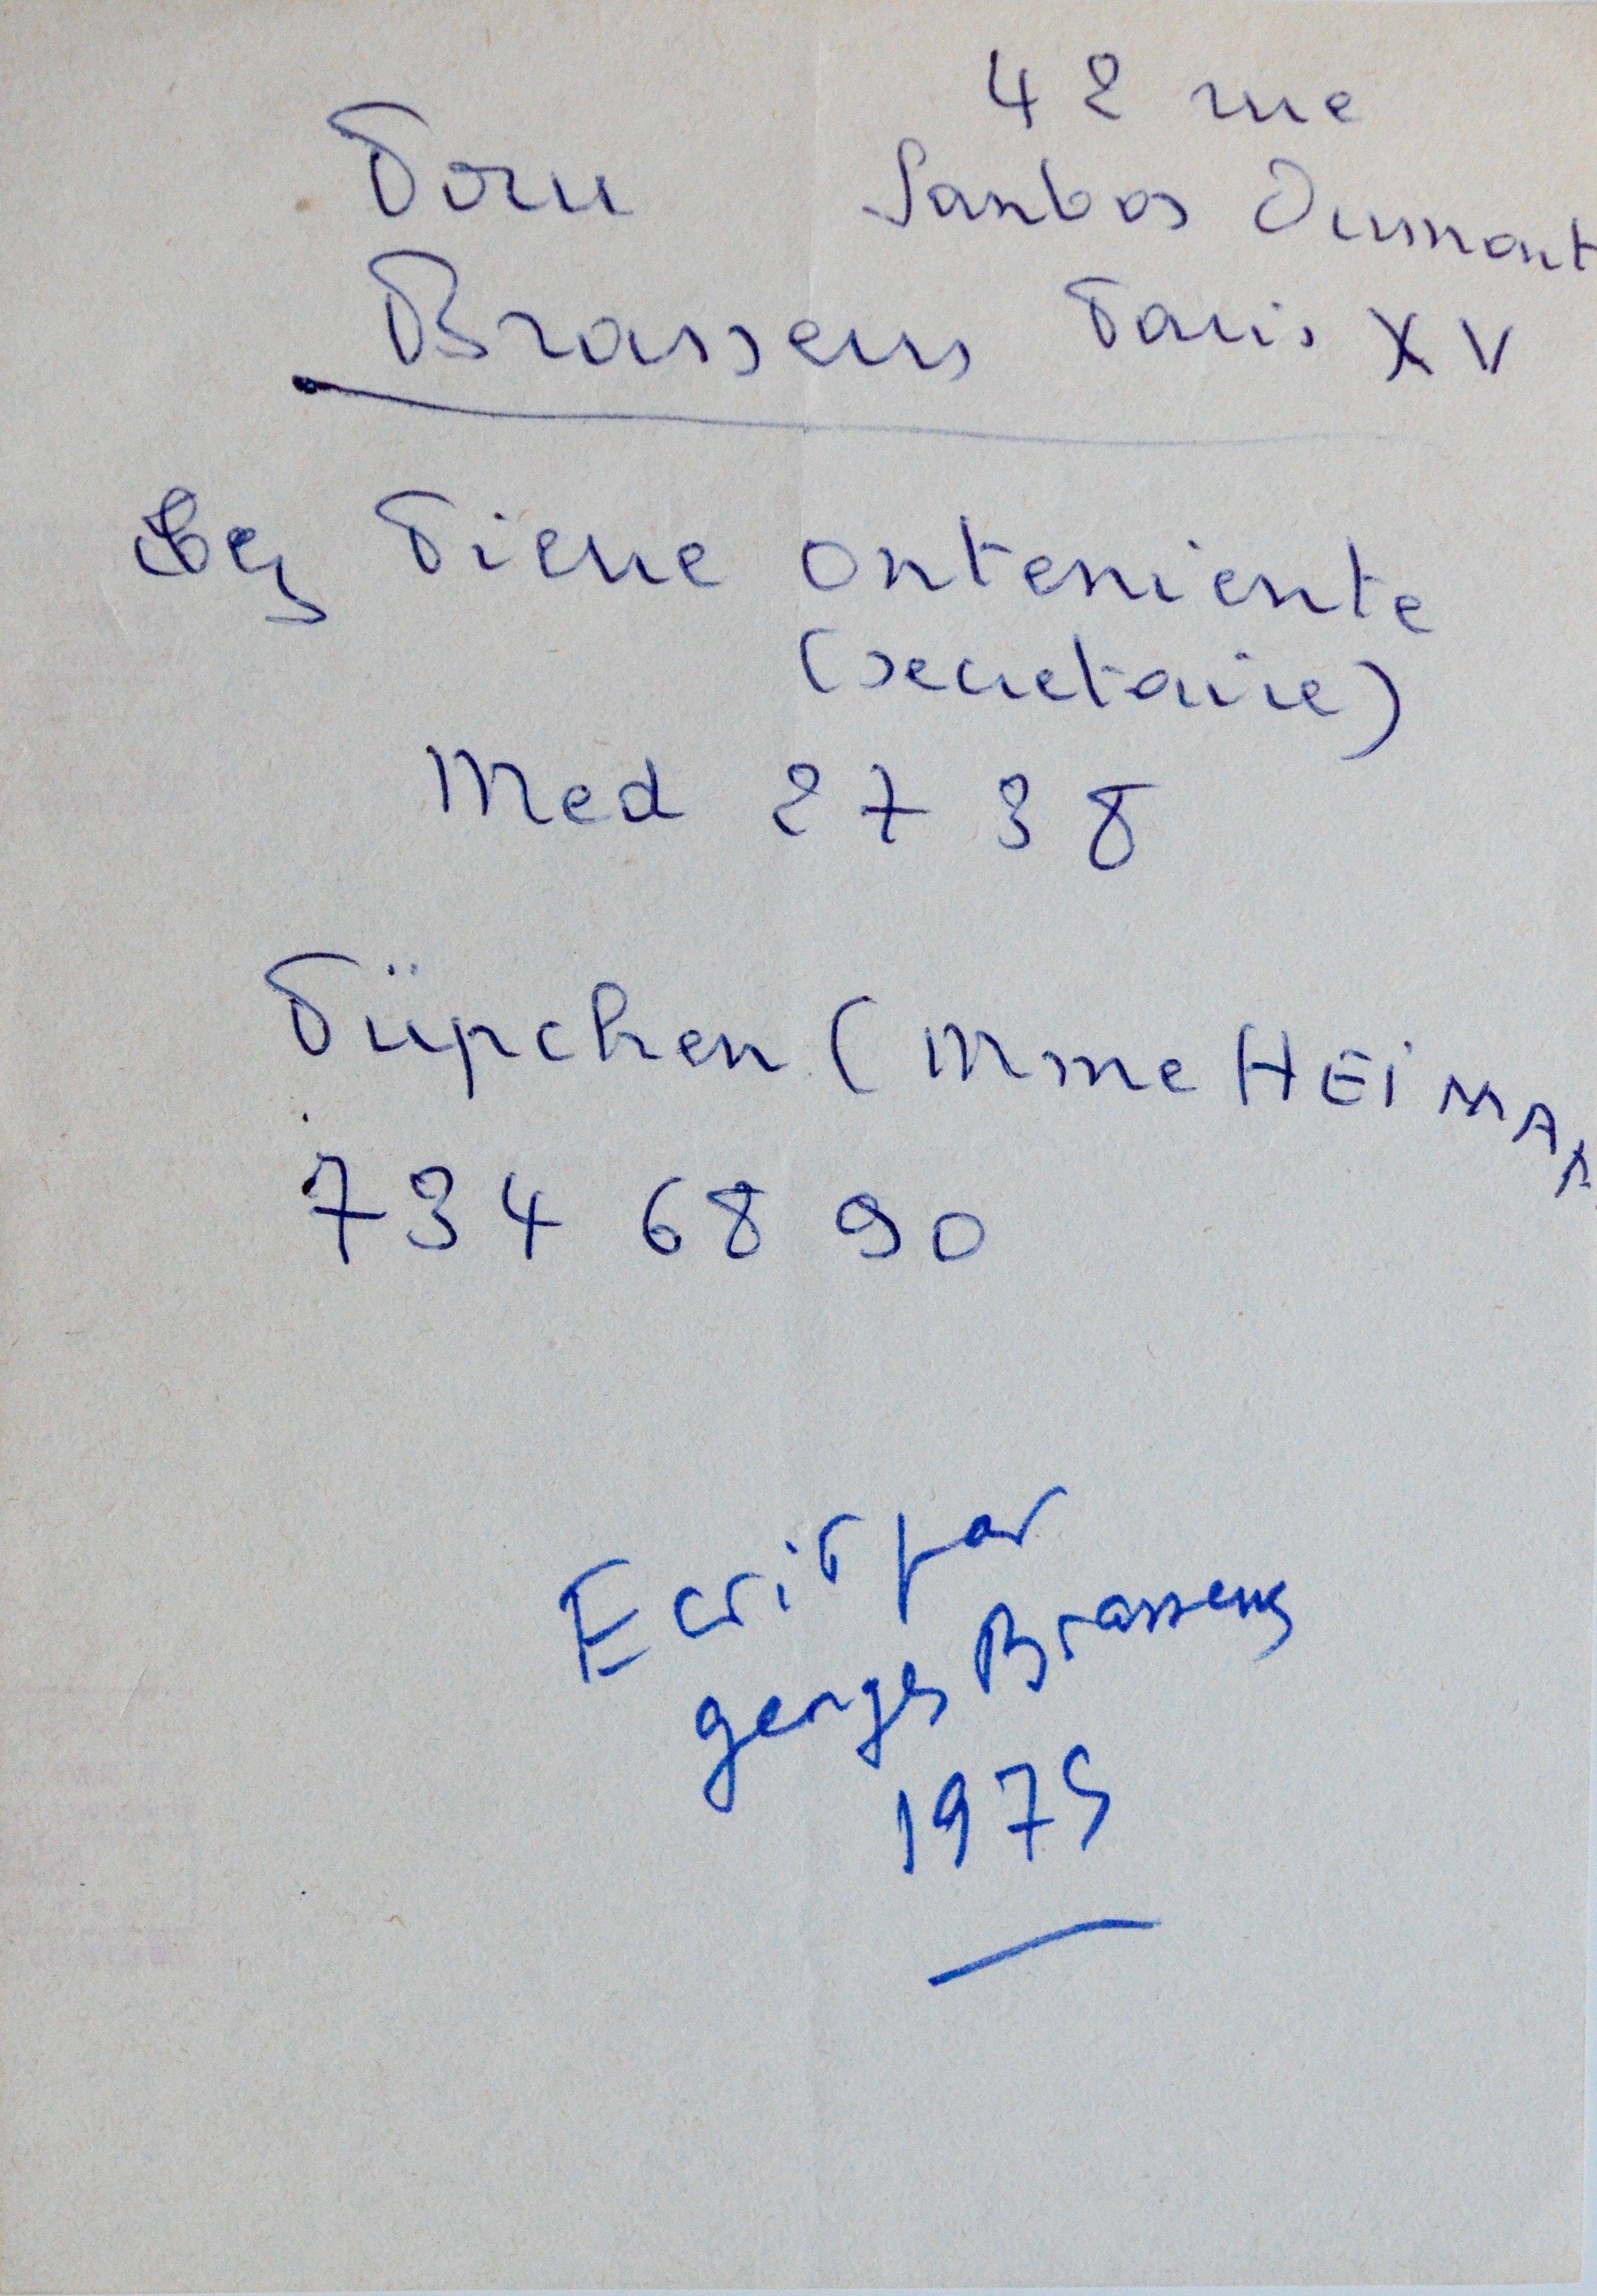 42 rue
Pour
Santos Dumont
Brassens
Paris XV
Pierre Onteniente
(secretaire)
Med 27 38
Püpchen (Mme HEiMAN
734 68 90
Ecrit par
georges Brassens
1975